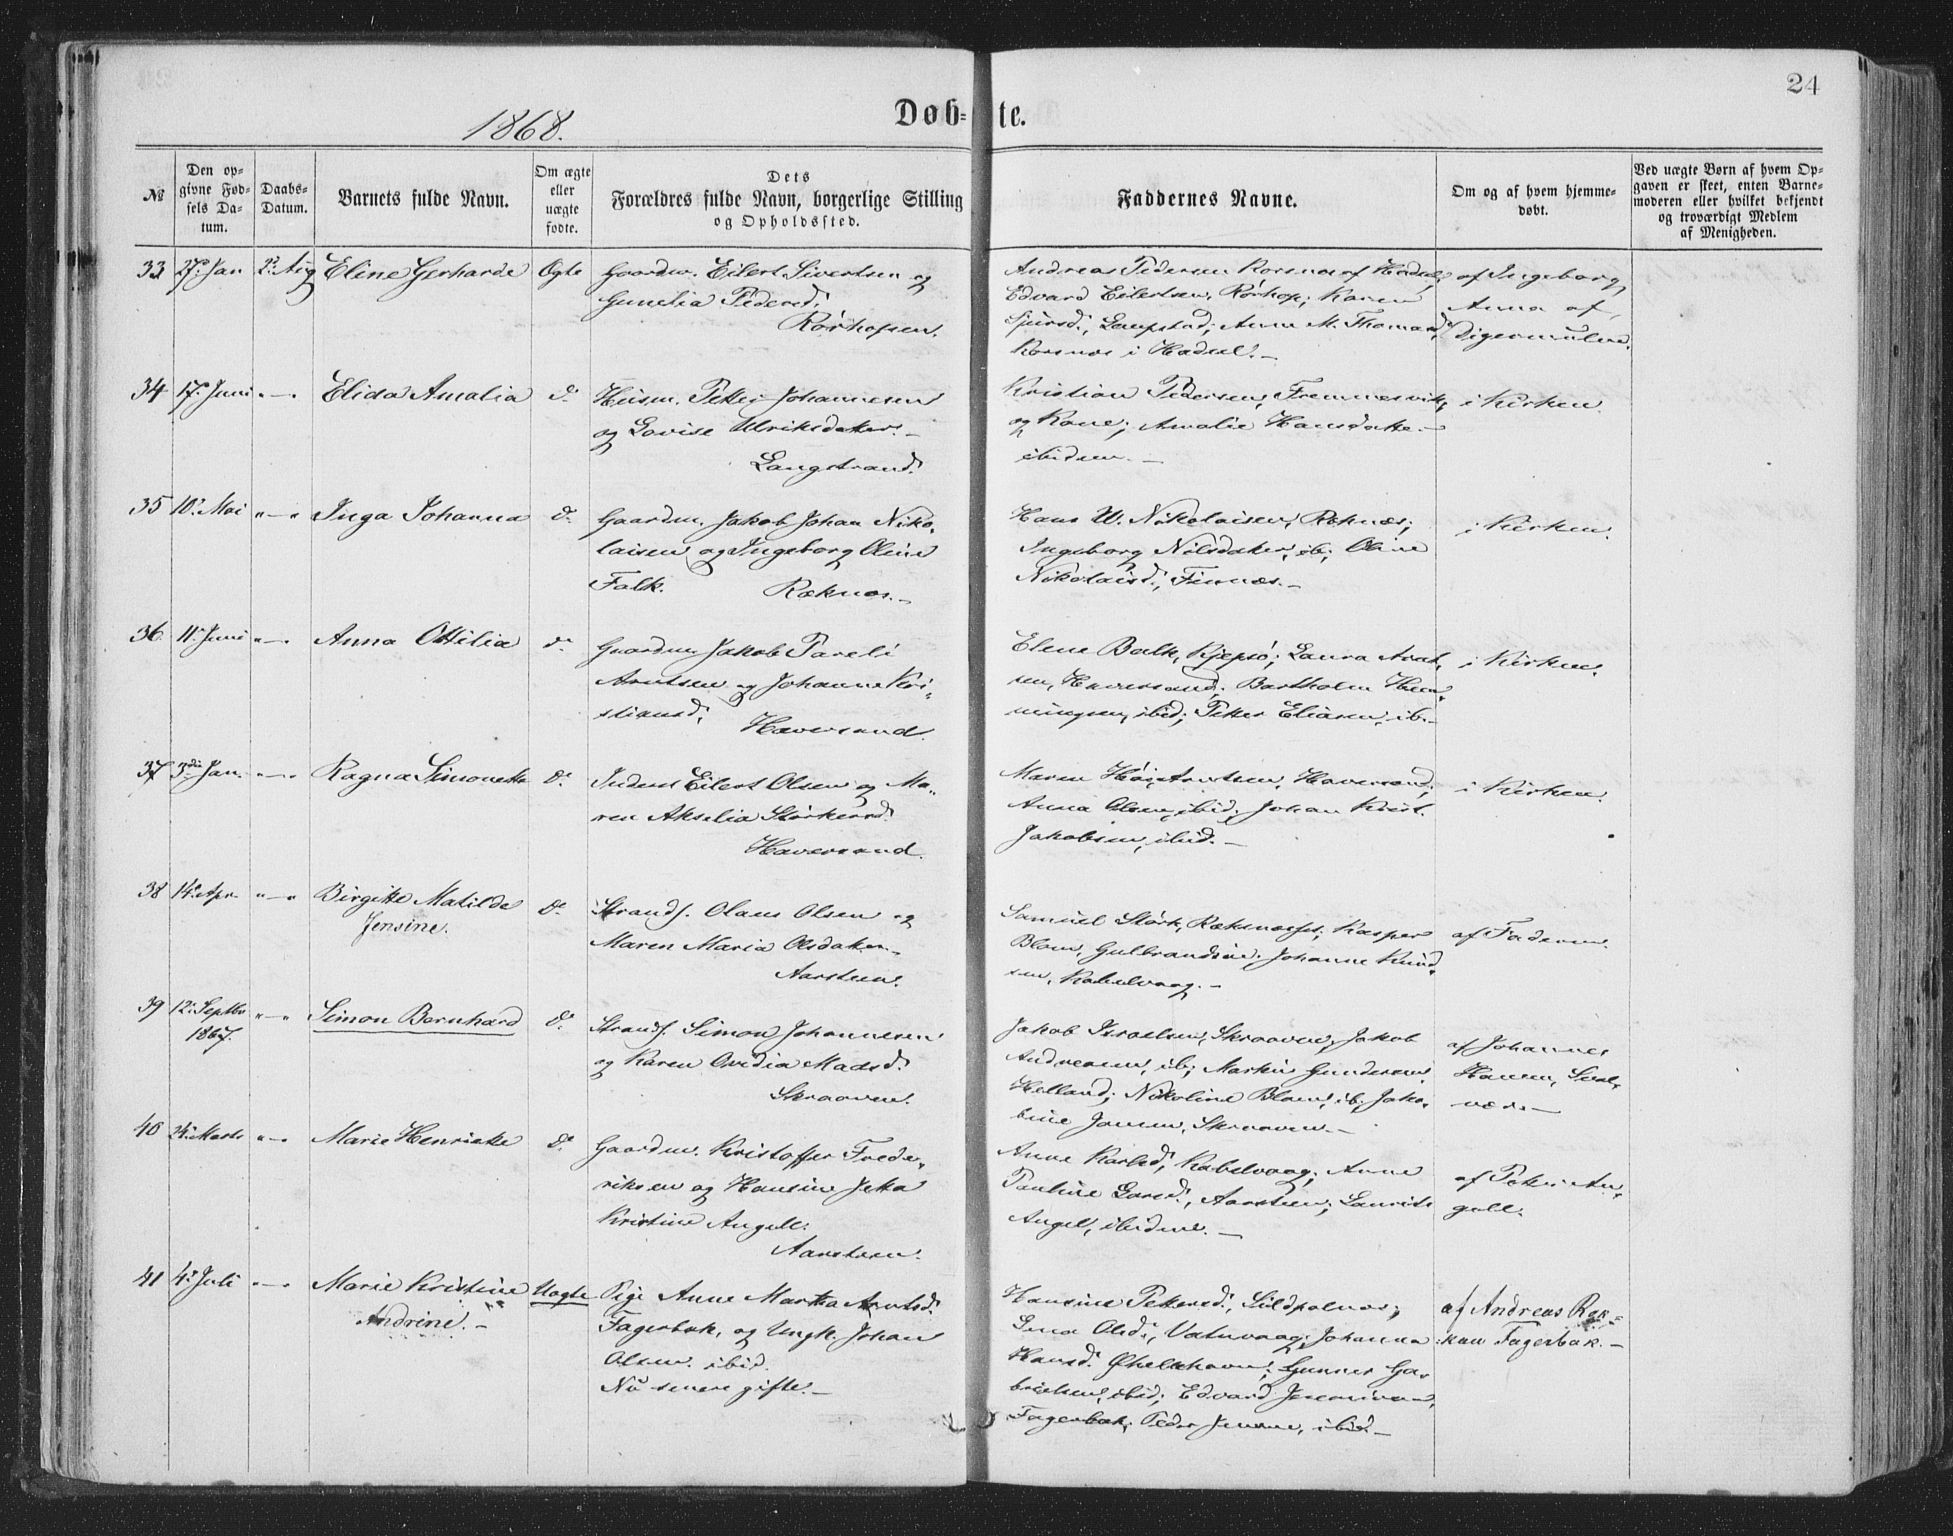 24
1868.
Døb-te.
№
Den opgivne Fødsels Datum.
Daabs-Datum.
Barnets fulde Navn.
Om ægte eller uægte fødte.
Dets Forældres fulde Navn, borgerlige Stilling og Opholdssted.
Faddernes Navne.
Om og af hvem hjemmedøbt.
Ved uægte Børn af hvem Opgaven er skeet, enten Barnemoderen eller hvilket bekjendt og troværdigt Medlem af Menigheden.
33 27. Jan 2. Aug Eline Gerharde Ægte
Gaardm. Eilert Sivertsen og
Gunelia Pedersd.
Rørhopen.
Andreas Pedersen Korsnæs af Hadsel;
Edvard Eilertsen, Rørhop; Karen
Sjursd., Laupstad; Anne M. Thomasd.
Korsnæs i Hadsel.-
af Ingeborg
Anna af
Digermulen.
34 17. Juni "-" Elida Amalia d.
Husm. Petter Johannesen
og Lovise Ulriksdatter.-
Langstrand.
Kristian Pedersen, Fremmesvik,
og Kone; Amalie Hansdatter
ibidem.-
i Kirken.
35 10. Mai "-" Inga Johanna d.
Gaardm. Jakob Johan Niko-
laisen og Ingeborg Oline
Falk. Røknæs.-
Hans U. Nikolaisen, Røknæs;
Ingeborg Nilsdatter, ib; Oline
Nikolaisd., Finnæs.-
i Kirken.
36 11. Juni "-" Anna Ottilia d.
Gaardm. Jakob Pareli
Arntsen og Johanne Kri-
stiansd. Haversand.
Elene Balk, Kjepsø; Laura Arnt-
sen, Haversand; Bartholm Hem-
mingsen, ibid; Petter Eliasen, ib.-
i Kirken.
37 3die Jan. "-" Ragna Simonette d.
Inderst Eilert Olsen og Ma-
ren Akselia Størkersd.
Haversand.
Maren Arntsen, Haversand;
Anna Olsen, ibid; Johan Krist.
Jakobsen, ibid.-
i Kirken.
38 14. Apr. "-" Birgitte Matilde
Jensine.
d.
Strands. Olaus Olsen og
Maren Maria Olsdatter.-
Aarsteen.
Samuel Størk, Røknæs; Kasper
Blom, Gulbrandsøe; Johanne Knud-
sen, Kabelvaag.-
af Faderen.
39 12. Septbr
1867.
"-" Simon Bernhard d.
Strands. Simon Johannesen
og Karen Ovidia Madsd.
Skraaven.
Jakob Israelsen, Skraaven; Jakob
Andreasen, ib; Martin Gundersen,
Helland; Nikoline Blom, ib; Jako-
bine Jansen, Skraaven.-
af Johannes
Hansen, Svol-
vær.-
40 24. Marts "-" Marie Henrikke d.
Gaardm. Kristoffer Frede-
riksen og Hansine Jetta
Kristine Angell.
Aarsteen.
Anne Karlsd., Kabelvaag; Anne
Pauline Larsd., Aarsteen; Laurits
Angel, ibidem.-
af Petter An-
gell.
41 4. Juli "-" Marie Kristine
Andrine.-
Uægte
Pige Anne Martha Arntsd.
Fagerbak, og Ungk. Johan
Olsen. ibid.
Nu senere gifte.-
Hansine Pettersd., Sildpolnæs;
Lina Olsd., Vatnvaag; Johanna
Hansd. Øhellehavn; Gunner Ga-
brielsen, ibid; Edvard Jeremiasen,
Fagerbak; Peder Jensen, ibid.-
af Andreas Røk-
kan Fagerbak.-